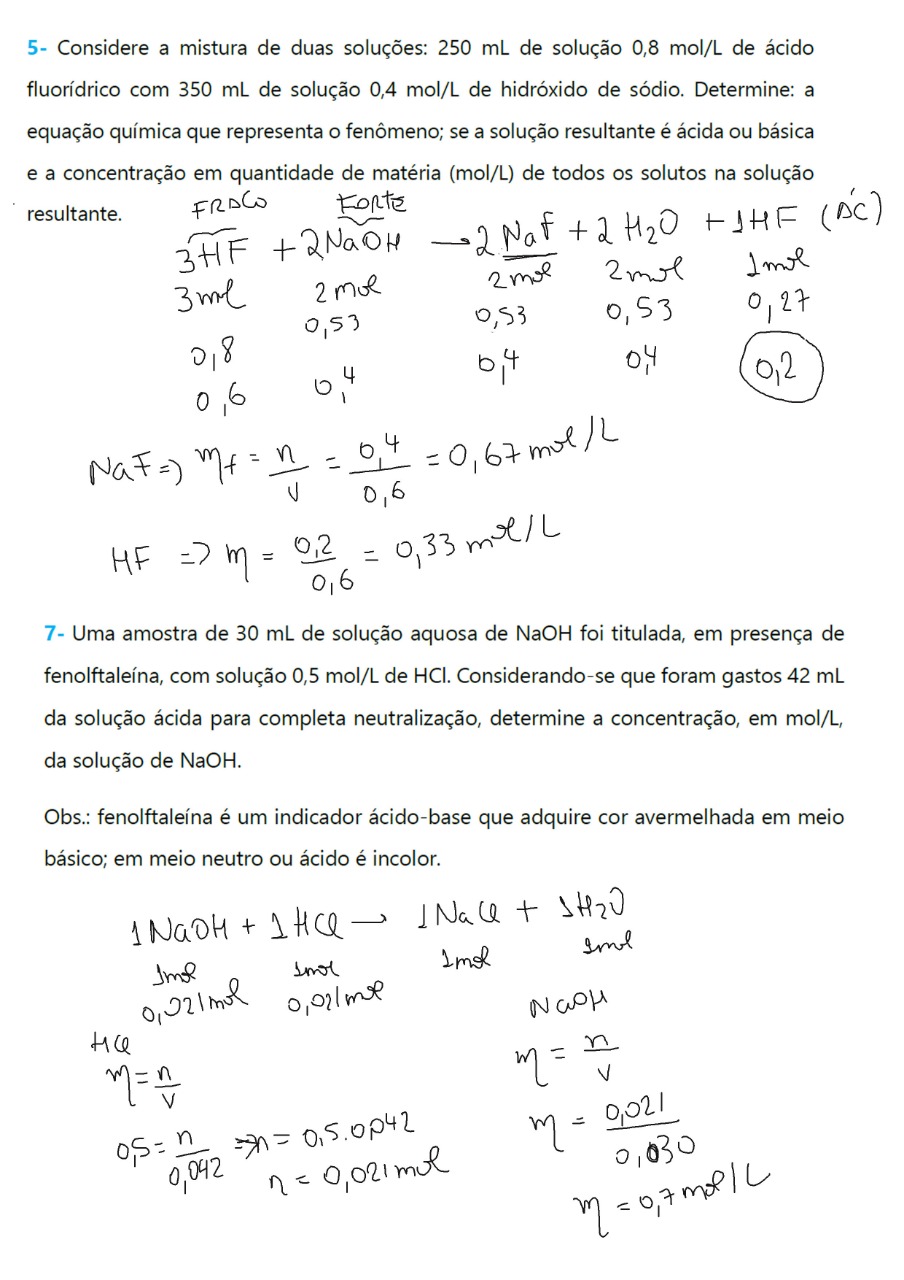 5- Considere a mistura de duas soluções: 250 mL de solução 0,8 mol/L de ácido
fluorídrico com 350 mL de solução 0,4 mol/L de hidróxido de sódio. Determine: a
equação química que representa o fenômeno; se a solução resultante é ácida ou básica
e a concentração em quantidade de matéria (mol/L) de todos os solutos na solução
resultante.
FRACO FORTE
3HF + 2NaOH → 2 NaF + 2 H2O + 1HF (ÁC)
3mol 2 mol 2mol 2mol 1mol
0,53 0,53 0,53 0,27
0,8 0,4 0,4 0,2
0,6 0,4
NaF => mf = n/v = 0,4/0,6 = 0,67 mol/L
HF => m = 0,2/0,6 = 0,33 mol/L
7- Uma amostra de 30 mL de solução aquosa de NaOH foi titulada, em presença de
fenolftaleína, com solução 0,5 mol/L de HCl. Considerando-se que foram gastos 42 mL
da solução ácida para completa neutralização, determine a concentração, em mol/L,
da solução de NaOH.
Obs.: fenolftaleína é um indicador ácido-base que adquire cor avermelhada em meio
básico; em meio neutro ou ácido é incolor.
1NaOH + 1HCl → 1NaCl + 1H2O
1mol 1mol 1mol 1mol
0,021mol 0,021mol
HCl
m = n/v
0,5 = n/0,042 => n = 0,5.0,042
n = 0,021mol
NaOH
m = n/v
m = 0,021/0,030
m = 0,7 mol/L